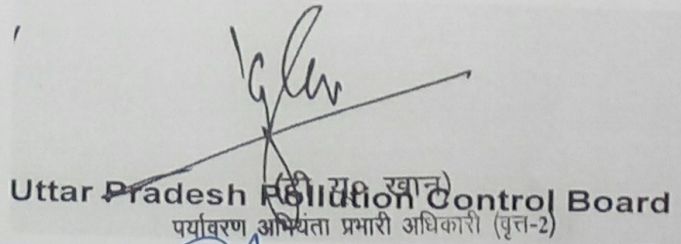 Uttar Pradesh Pollution Control Board
खान)
पर्यावरण अभियंता प्रभारी अधिकारी (वृत्त-2)